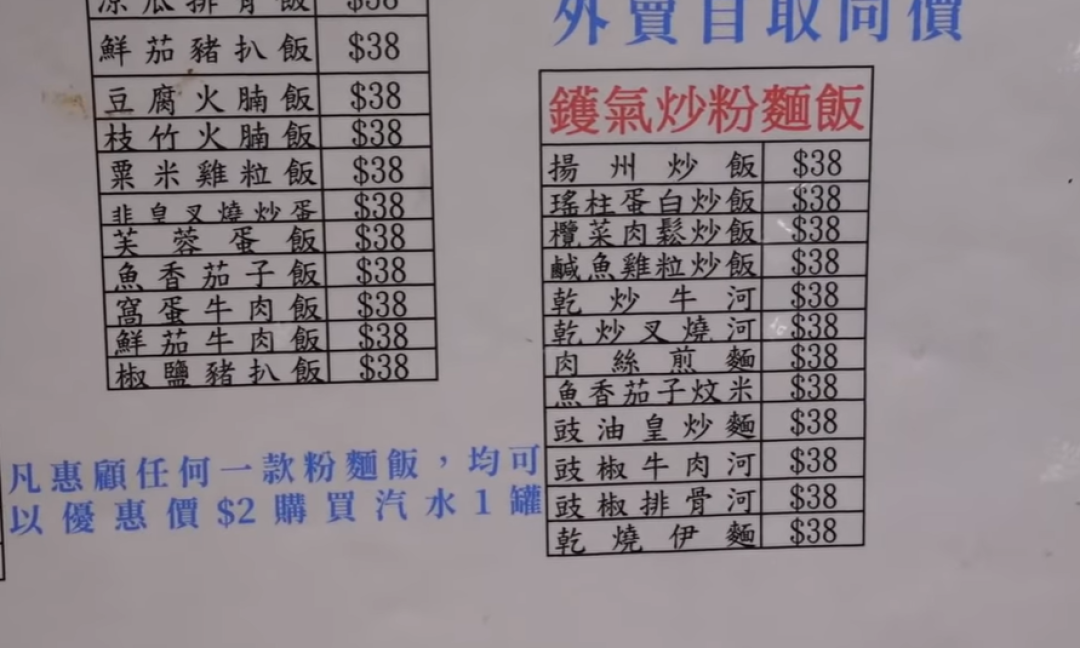 涼瓜排骨飯 $38
鮮茄豬扒飯 $38
豆腐火腩飯 $38
枝竹火腩飯 $38
粟米雞粒飯 $38
韭皇叉燒炒蛋 $38
芙蓉蛋飯 $38
魚香茄子飯 $38
窩蛋牛肉飯 $38
鮮茄牛肉飯 $38
椒鹽豬扒飯 $38
凡惠顧任何一款粉麵飯，均可
以優惠價$2購買汽水1罐
外賣自取同價
鑊氣炒粉麵飯
揚州炒飯 $38
瑤柱蛋白炒飯 $38
欖菜肉鬆炒飯 $38
鹹魚雞粒炒飯 $38
乾炒牛河 $38
乾炒叉燒河 $38
肉絲煎麵 $38
魚香茄子炆米 $38
豉油皇炒麵 $38
豉椒牛肉河 $38
豉椒排骨河 $38
乾燒伊麵 $38